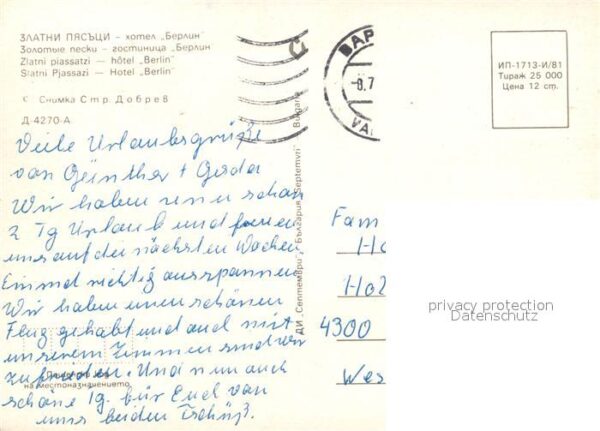 ЗЛАТНИ ПЯСЪЦИ - хотел „Берлин"
Золотые пески - гостиница „Берлин"
Zlatni piassatzi — hôtel „Berlin"
Slatni Pjassazi — Hotel „Berlin"
С Снимка Стр. Добрев
Д-4270-А
Viele Urlaubsgrüße
von Günther + Gerda
Wir haben nun schon
2 Tg Urlaub und freuen
uns auf die nächsten Wochen
Einmal richtig ausspannen
Wir haben einen schönen
Flug gehabt und auch mit
unserem Zimmer sind wir
zufrieden. Und nun auch
schöne Tg. für Euch von
uns beiden Tschüß.
на местоназначението
ДИ „Септември", България Septemvri
Bulgaria
ВАР
-8.7
VAR
ИП-1713-И/81
Тираж 25 000
Цена 12 ст.
Fam
Ho
Hol
4300
Wes
privacy protection
Datenschutz